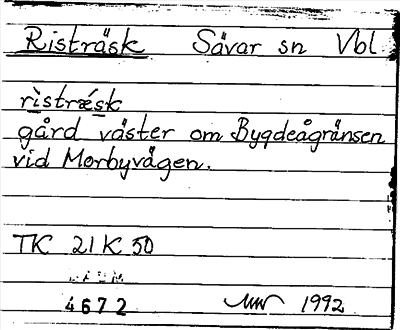 Risträsk Sävar sn Vbl
rìstrǽsk
gård väster om Bygdeågränsen
vid Morbyvägen.
TK 21 K 50
DAUM
4672 1992